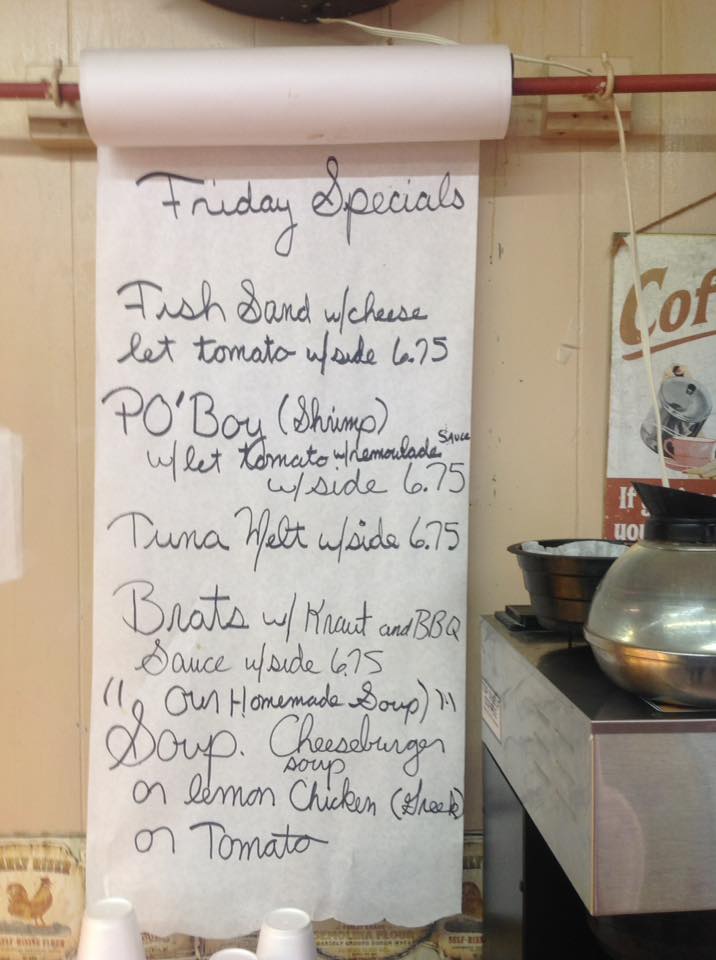 Friday Specials
Fish Sand w/cheese
let tomato w/side 6.75
PO'Boy (Shrimp)
w/let tomato w/remoulade sauce
w/side 6.75
Tuna Melt w/side 6.75
Brats w/ Kraut and BBQ
Sauce w/side 6.75
(( Our Homemade Soup) ))
Soup. Cheeseburger
soup
or lemon Chicken (Greek)
or Tomato
Cof
If
you
SEMOLINA FLOUR